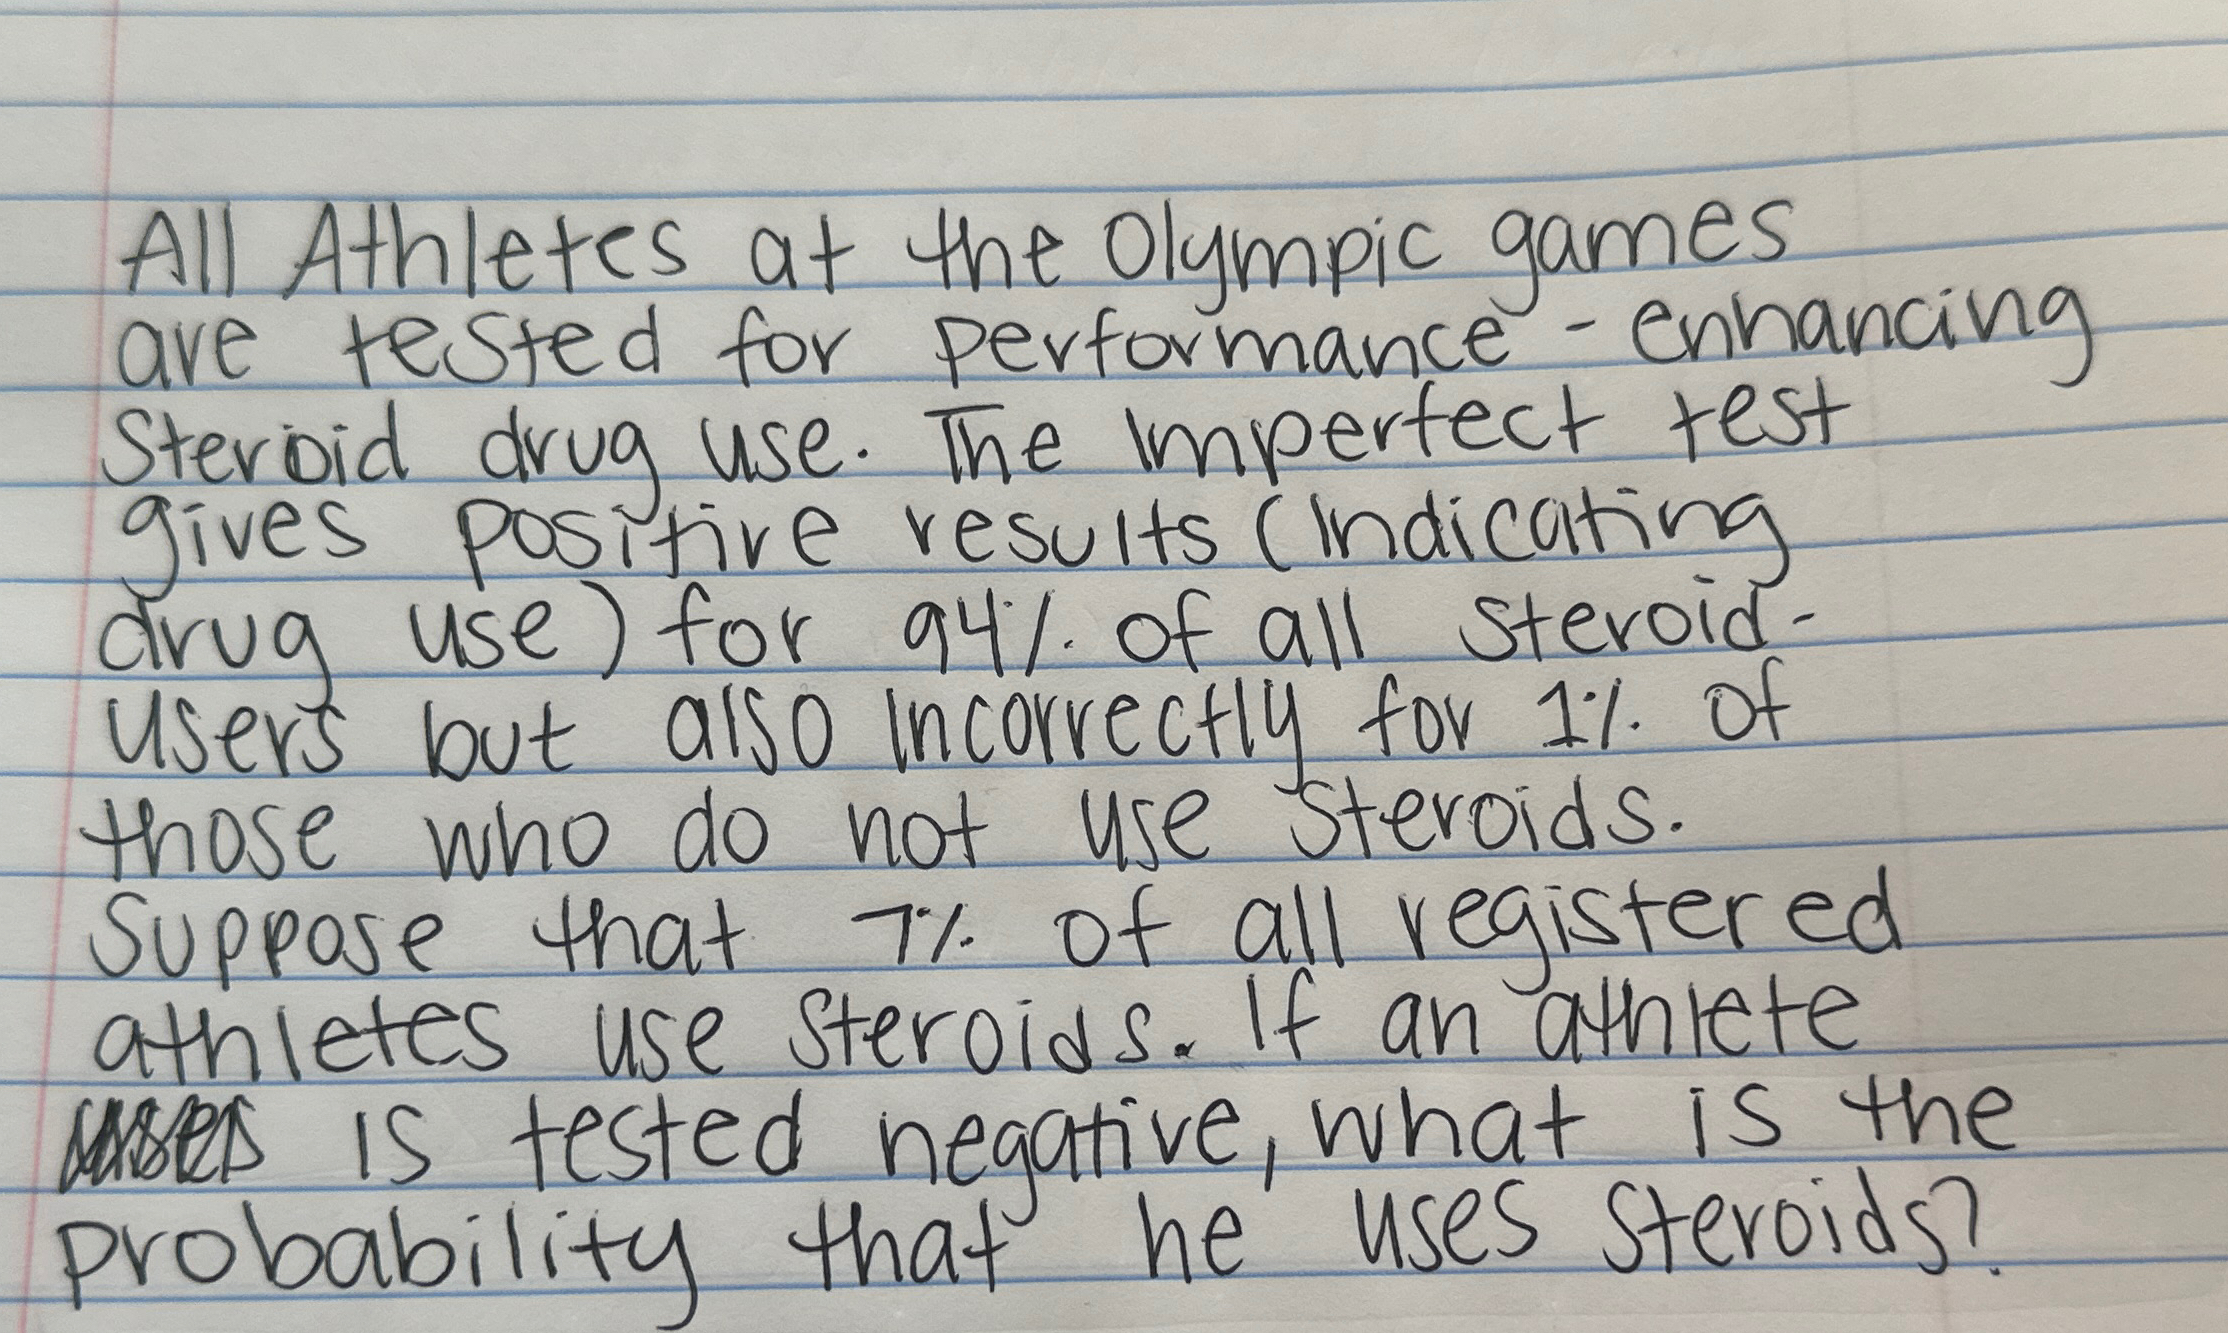 All Athletes at the Olympic games
are tested for performance - enhancing
Steroid drug use. The imperfect test
gives positive results (indicating
drug use) for 94% of all steroid-
users but also incorrectly for 1% of
those who do not use steroids.
Suppose that 7% of all registered
athletes use steroids. If an athlete
is tested negative, what is the
probability that he uses steroids?